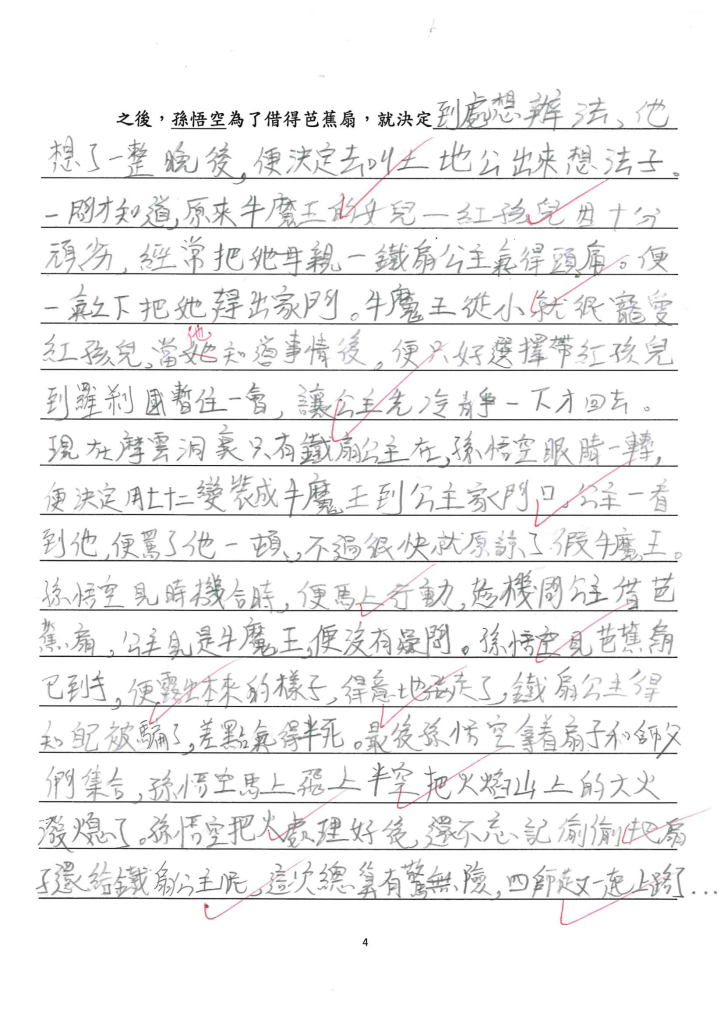 之後，孫悟空為了借得芭蕉扇，就決定到處想辦法、他
想了一整晚後，便決定去叫土地公出來想法子。
一問才知道，原來牛魔王的女兒—紅孩兒因十分
頑劣，經常把她母親—鐵扇公主氣得頭痛。便
一氣之下把她趕出家門。牛魔王從小就很寵愛
紅孩兒，當她他知道事情後，便只好選擇帶紅孩兒
到羅剎國暫住一會，讓公主先冷靜一下才回去。
現在摩雲洞裏只有鐵扇公主在，孫悟空眼睛一轉，
便決定用七十二變裝成牛魔王到公主家門口。公主一看
到他，便罵了他一頓，不過很快就原諒了假牛魔王。
孫悟空見時機合時，便馬上行動，趁機問公主借芭
蕉扇，公主見是牛魔王，便沒有疑問。孫悟空見芭蕉扇
已到手，便露出本來的樣子，得意地逃走了，鐵扇公主得
知自己被騙了，差點氣得半死。最後孫悟空拿着扇子和師父
們集合，孫悟空馬上飛上半空把火焰山上的大火
潑熄了。孫悟空把火處理好後，還不忘記偷偷把扇
子還給鐵扇公主呢，這次總算有驚無險，四師徒又一起上路了...
4